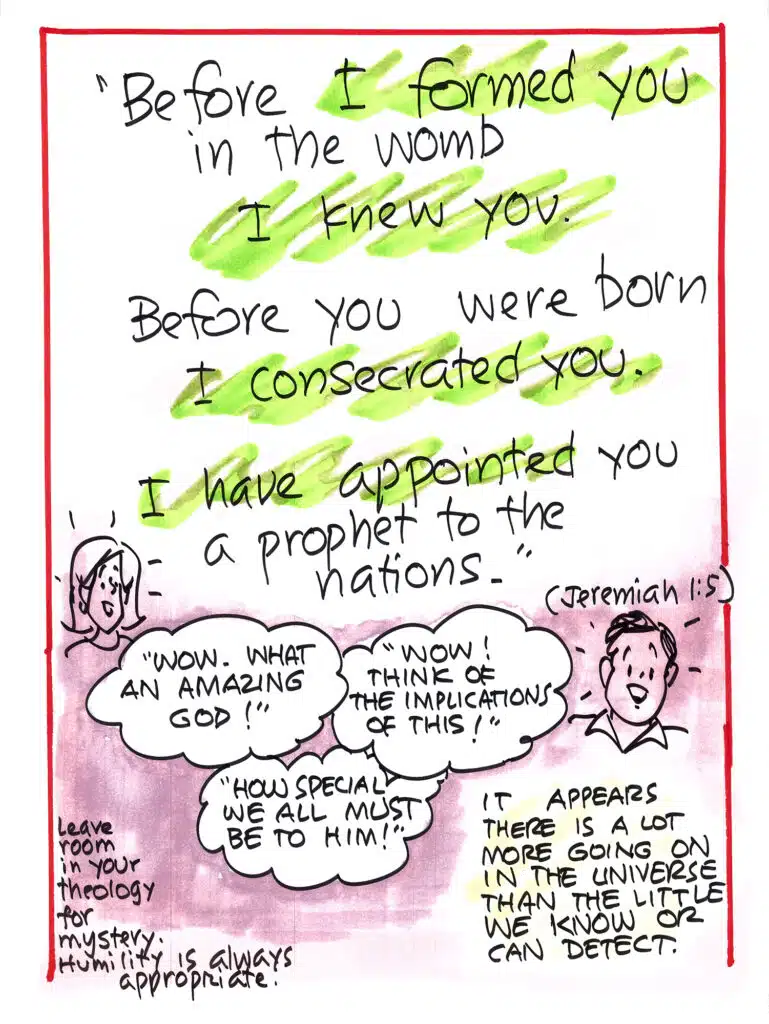 "Before I formed you
in the womb
I knew you.
Before you were born
I consecrated you.
I have appointed you
a prophet to the
nations."
(Jeremiah 1:5)
"WOW. WHAT
AN AMAZING
GOD!"
"WOW!
THINK OF
THE IMPLICATIONS
OF THIS!"
"HOW SPECIAL
WE ALL MUST
BE TO HIM!"
Leave
room
in your
theology
for
mystery.
Humility is always
appropriate.
IT APPEARS
THERE IS A LOT
MORE GOING ON
IN THE UNIVERSE
THAN THE LITTLE
WE KNOW OR
CAN DETECT.